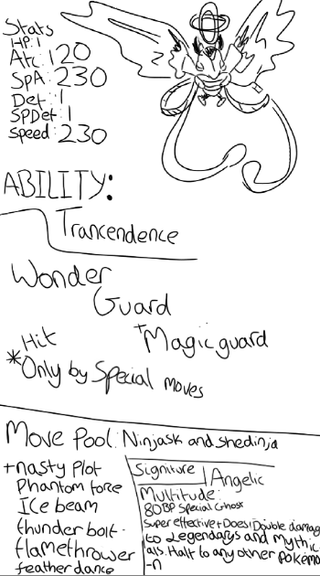 Stats
HP: 1
Atk: 120
SpA: 230
Def: 1
SPDef: 1
Speed: 230
ABILITY:
Trancendence
Wonder
Guard
+Magic guard
Hit
*Only by Special moves
Move Pool: Ninjask and shedinja
+nasty Plot
Phantom force
ICe beam
thunder bolt
flamethrower
feather dance
Signiture
Angelic
Multitude:
80BP Special Ghost
Super effective + Does Double damage
to Legendarys and Mythic
als. Half to any other Pokemo
-n